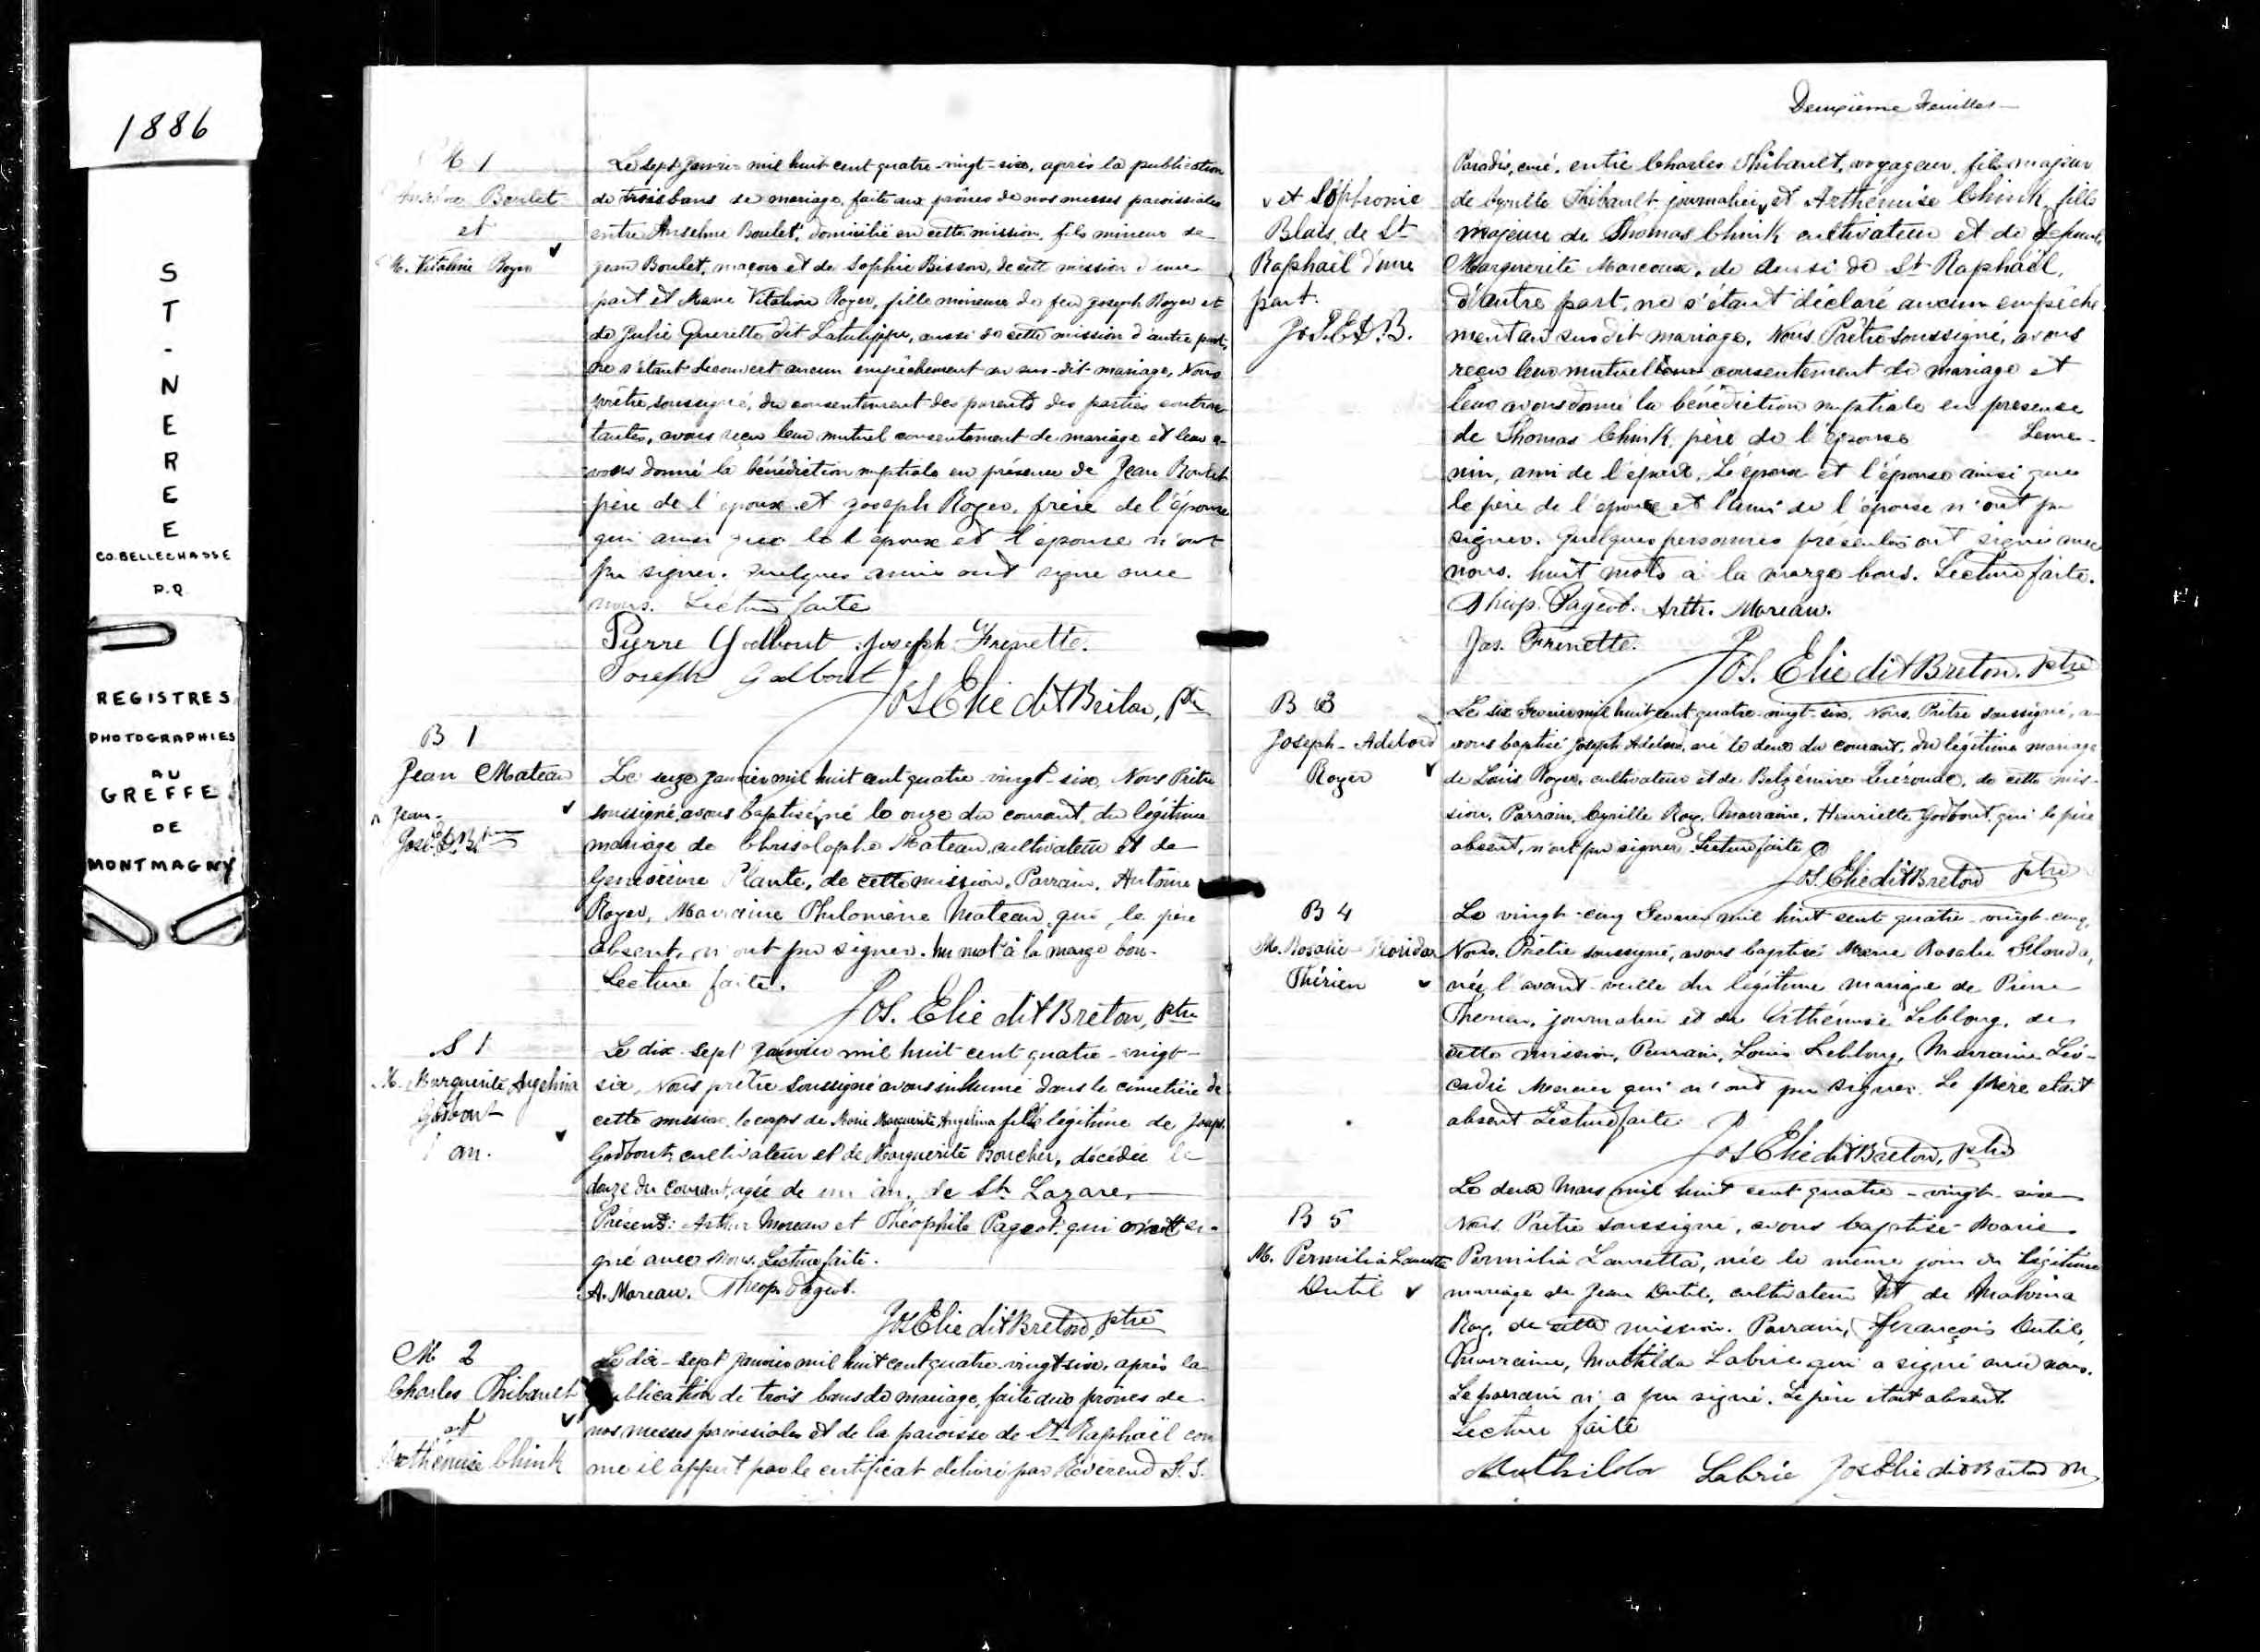 1886
ST-NEREE
CO. BELLECHASSE
P.Q.
REGISTRES
PHOTOGRAPHIES
AU
GREFFE
DE
MONTMAGNY
M 1
Boulet
et
M. Vitaline Royer
Le sept Janvier mil huit cent quatre-vingt-six, après la publication
de trois bans de mariage, faite aux prônes de nos messes paroissiales
entre Anselme Boulet, domicilié en cette mission, fils mineur de
Jean Boulet, maçon et de Sophie Bisson, de cette mission d'une
part et Marie Vitaline Royer, fille mineure de feu Joseph Royer et
de Julie Querette dit Latulippe, aussi de cette mission d'autre part,
ne s'étant découvert aucun empêchement au sus-dit mariage, Nous
prêtre, soussigné, du consentement des parents des parties contrac-
tantes, avons reçu leur mutuel consentement de mariage et leur a-
vons donné la bénédiction nuptiale en présence de Jean Boulet
père de l'époux et Joseph Royer, frère de l'épouse
qui ainsi que l'époux et l'épouse n'ont
pu signer. Quelques amis ont signé avec
nous. Lecture faite
Pierre Godbout Joseph Frenette.
Joseph Godbout
Jos Elie dit Breton, Ptre
B 1
Jean Mateau
Jean-
Le onze janvier mil huit cent quatre-vingt-six, Nous Prêtre
soussigné, avons baptisé, né le onze du courant, du légitime
mariage de Christophe Mateau, cultivateur et de
Plante, de cette mission. Parrain, Antoine
Royer, Marraine Philomène Mateau, qui, le père
absent, n'ont pu signer. Un mot à la marge bon.
Lecture faite.
Jos. Elie dit Breton, ptre
S 1
M. Marguerite Angelina
Godbout
1 an.
Le dix-sept Janvier mil huit cent quatre-vingt-
six, Nous prêtre soussigné avons inhumé dans le cimetière de
cette mission, le corps de Marie Marguerite Angelina fille légitime de Joseph
Godbout, cultivateur et de Marguerite Boucher, décédée le
douze du courant, agée de un an, de St. Lazare,
Présents: Arthur Moreau et Théophile Pageot, qui ont si-
gné avec nous. Lecture faite.
A. Moreau. Theop. Pageot.
Jos Elie dit Breton, ptre
M 2
Charles Thibault
et
Arthémise Chink
Le dix-sept Janvier mil huit cent quatre-vingt-six, après la
publication de trois bans de mariage, faite aux prônes de
nos messes paroissiales et de la paroisse de St Raphaël com
me il appert par le certificat délivré par Révérend
Deuxième Feuillet
v et Sophronie
Blais, de St
Raphaël d'une
part.
Jos. E. d. B.
Paradis, curé, entre Charles Thibault, voyageur, fils majeur
de Cyrille Thibault journalier, et Arthémise Chink, fille
majeure de Thomas Chink cultivateur et de défunte
Marguerite Marcoux, de aussi de St-Raphaël,
d'autre part, ne s'étant déclaré aucun empêche
ment au susdit mariage, Nous, Prêtre soussigné, avons
reçu leur mutuel consentement de mariage et
leur avons donné la bénédiction nuptiale en présence
de Thomas Chink, père de l'épouse
ami de l'époux. L'époux et l'épouse ainsi que
le père de l'épouse et l'ami de l'épouse n'ont pu
signer. Quelques personnes présentes ont signé avec
nous. huit mots à la marge bons. Lecture faite.
Theop. Pageot. Arth. Moreau.
Jos. Frenette.
Jos. Elie dit Breton. ptre
B 3
Joseph-Adelard
Royer
Le six Fevrier mil huit cent quatre-vingt-six, Nous, Prêtre soussigné, a-
vons baptisé Joseph Adelard, né le deux du courant, du légitime mariage
de Louis Royer, cultivateur et de Belzémire de cette mis-
sion, Parrain, Cyrille Roy, Marraine, Henriette Godbout, qui le père
absent, n'ont pu signer Lecture faite
Jos. Elie dit Breton ptre
B 4
M. Rosalie-Florida
Thérien
Le vingt-cinq Fevrier mil huit cent quatre-vingt-cinq,
Nous, Prêtre soussigné, avons baptisé Marie Rosalie Florida,
née l'avant-veille du légitime mariage de Pierre
Therien, journalier et de Arthémise Leblong, de
cette mission, Parrain, Louis Leblong, Marraine Léo-
cadie Mercier qui n'ont pu signer. Le père etait
absent Lecture faite.
Jos Elie dit Breton, ptre
B 5
M. Permilia Lauretta
Dutil
Le deux Mars mil huit cent quatre-vingt-six
Nous, Prêtre soussigné, avons baptisé Marie
Permilia Lauretta, née le même jour du légitime
mariage de Jean Dutil, cultivateur et de Malvina
Roy, de cette mission. Parrain, François Dutil,
Marraine, Mathilda Labrie qui a signé avec nous.
Le parrain n'a pu signé. Le père etait absent
Lecture faite
Mathilda Labrie Jos Elie dit Breton